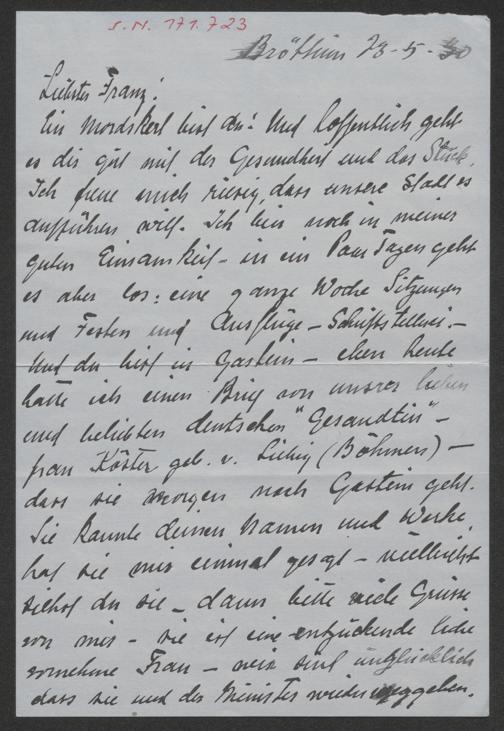 S.N. 171.723
Bröthim 23-5-30
Liebster Franz!
Ein Mordskerl bist du! Und hoffentlich geht
es dir gut mit der Gesundheit und das Stück.
Ich freue mich riesig, dass unsere Stadt es
aufführen will. Ich bin noch in meiner
guten Einsamkeit – in ein Paar Tagen geht
es aber los: eine ganze Woche Sitzungen
und Festen und Ausflüge – Schriftstellerei –
Und du bist in Gastein – eben heute
hatte ich einen Brief von unsrer lieben
und beliebten deutschen "Gesandtin" –
frau Köster geb. v. Liebig (Böhmen) –
dass sie morgen nach Gastein geht.
Sie kannte deinen Namen und Werke,
hat sie mir einmal gesagt – vielleicht
siehst du sie – dann bitte viele Grüsse
von mir – sie ist eine entzückende liebe
vornehme Frau – wir sind unglücklich
dass sie und der Minister wieder weggehen.